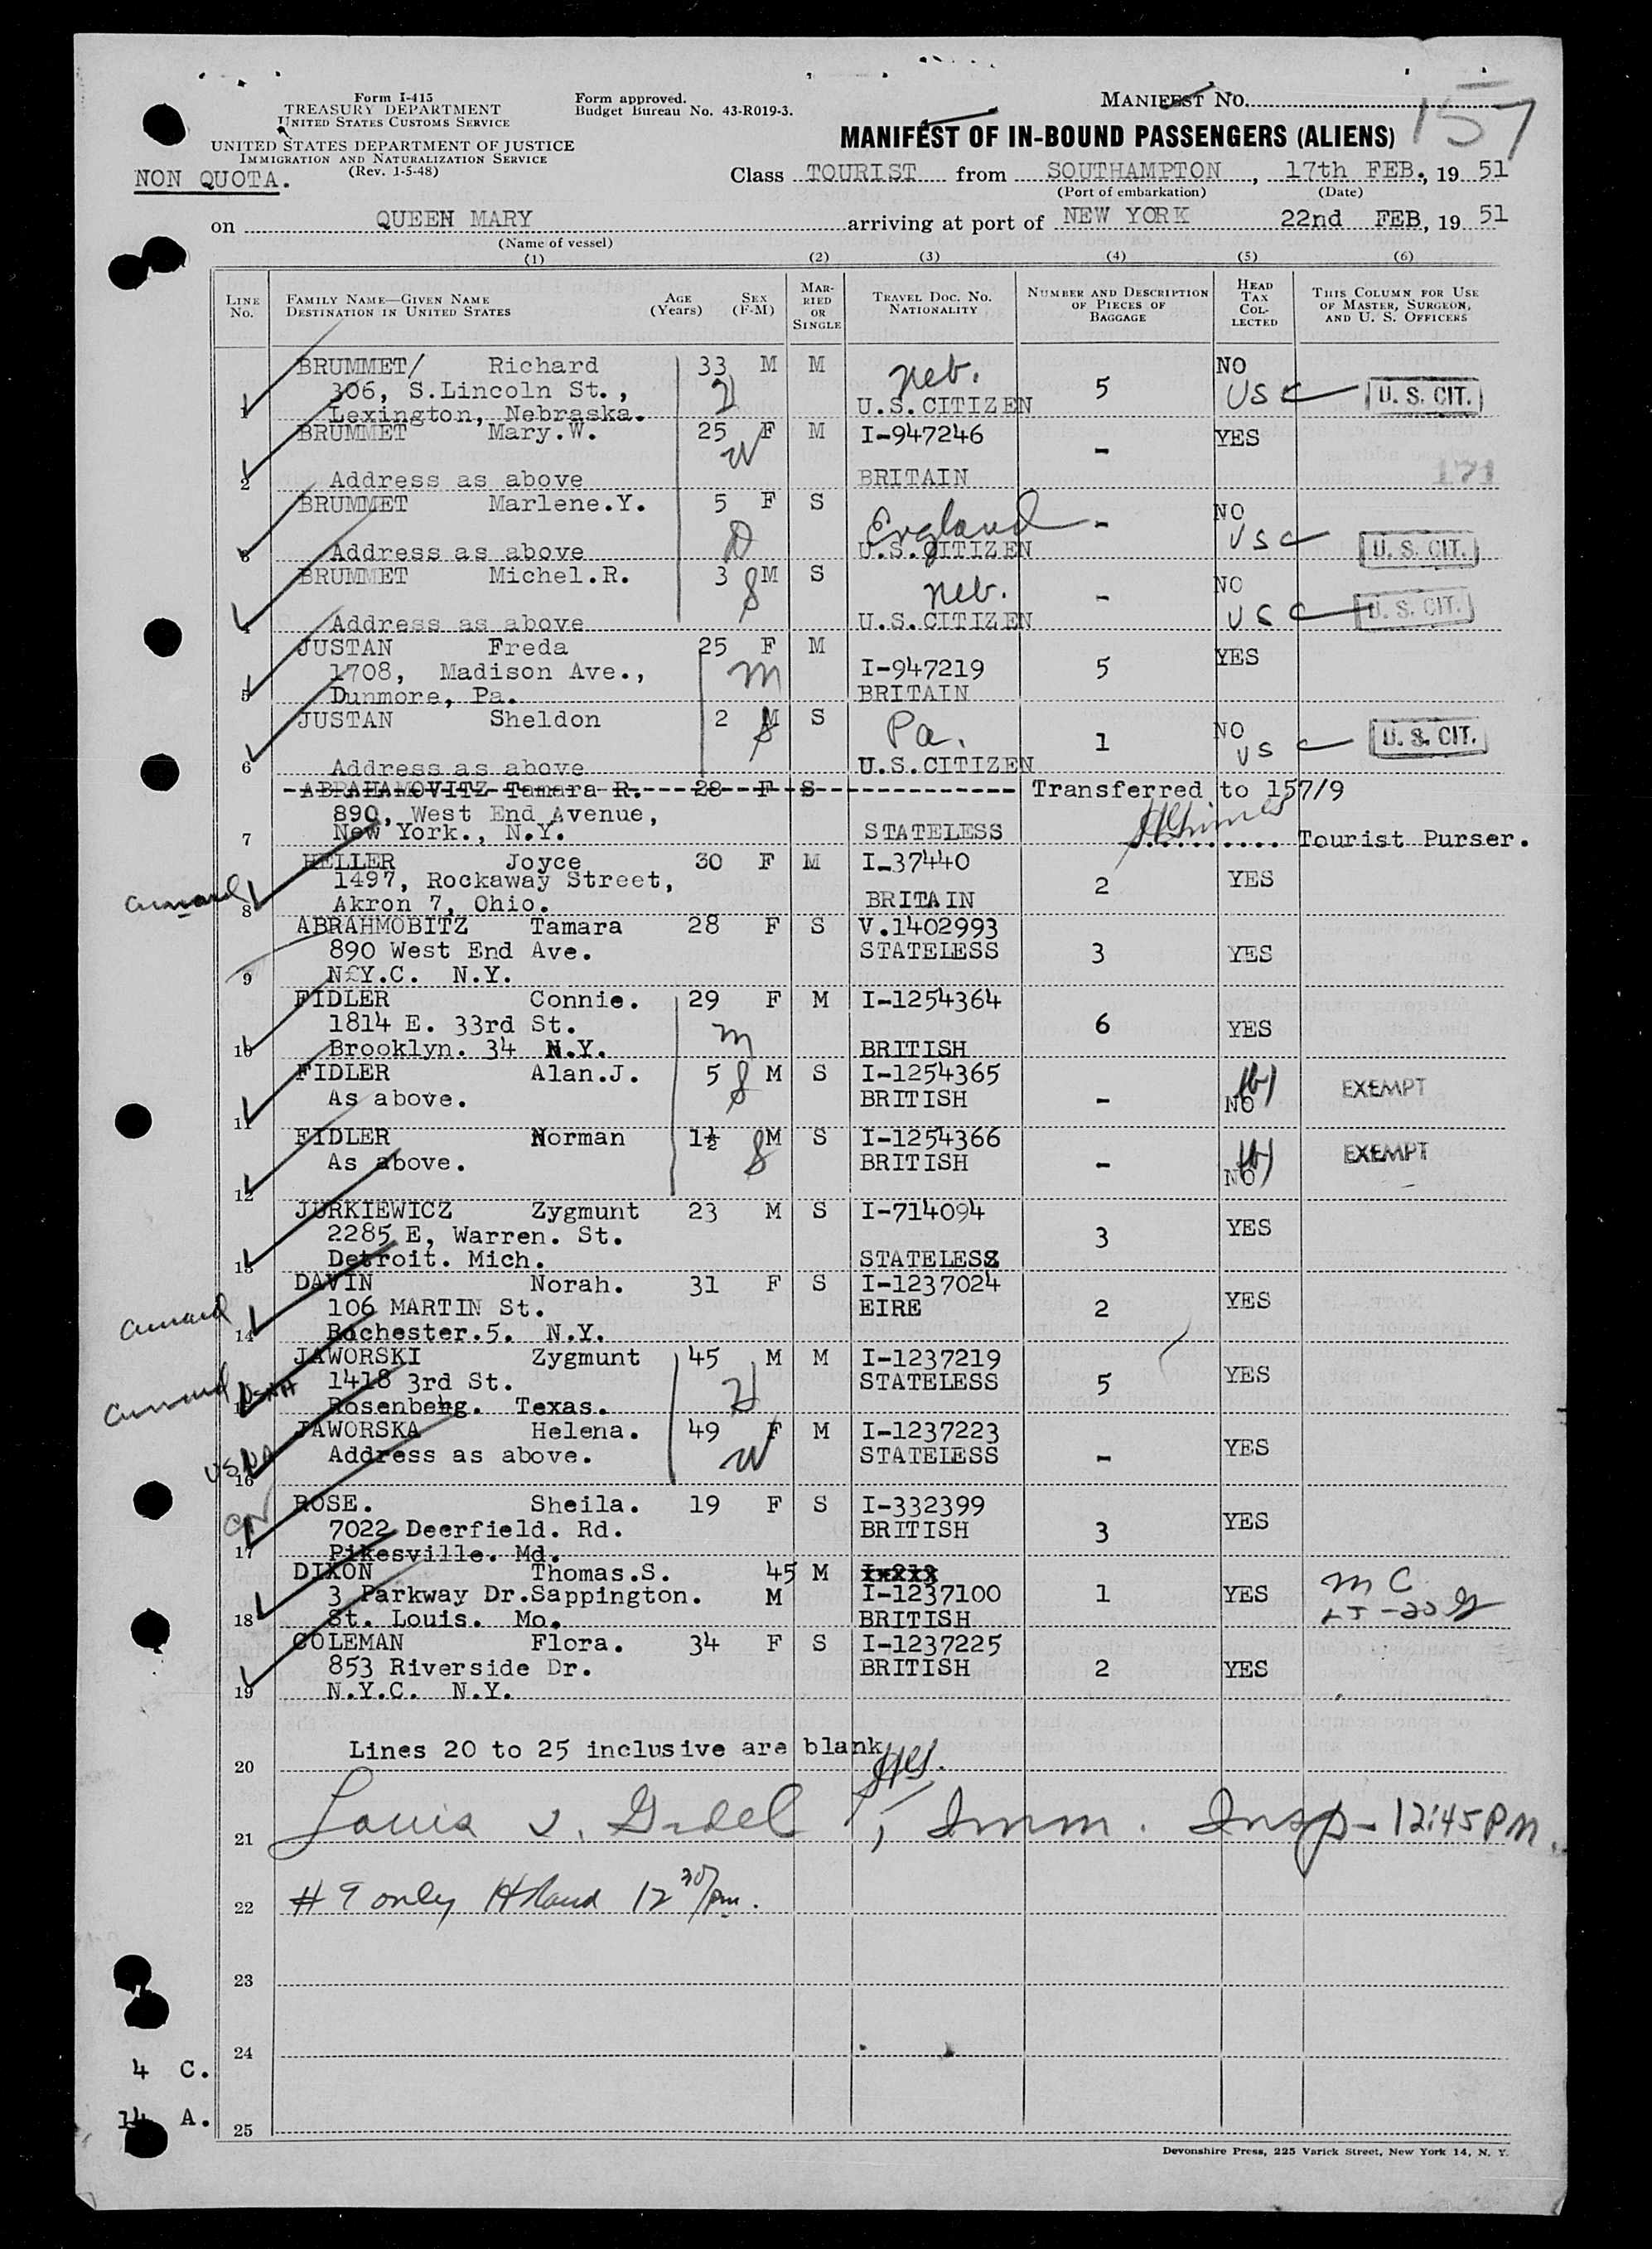 Form I-415
TREASURY DEPARTMENT
UNITED STATES CUSTOMS SERVICE
UNITED STATES DEPARTMENT OF JUSTICE
IMMIGRATION AND NATURALIZATION SERVICE
(Rev. 1-5-48)
NON QUOTA.
Form approved.
Budget Bureau No. 43-R019-3.
MANIFEST NO. 157
MANIFEST OF IN-BOUND PASSENGERS (ALIENS)
Class TOURIST from SOUTHAMPTON, 17th FEB., 19 51
(Port of embarkation) (Date)
on QUEEN MARY arriving at port of NEW YORK 22nd FEB, 19 51
(Name of vessel)
(1) (2) (3) (4) (5) (6)
LINE NO. FAMILY NAME—GIVEN NAME DESTINATION IN UNITED STATES AGE (Years) SEX (F-M) MARRIED OR SINGLE TRAVEL DOC. NO. NATIONALITY NUMBER AND DESCRIPTION OF PIECES OF BAGGAGE HEAD TAX COLLECTED THIS COLUMN FOR USE OF MASTER, SURGEON, AND U. S. OFFICERS
BRUMMET/ Richard 33 M M Neb. NO
306, S.Lincoln St., H 5 USC U. S. CIT.
1 Lexington, Nebraska. U.S.CITIZEN
BRUMMET Mary.W. 25 F M I-947246 - YES
W
2 Address as above BRITAIN 171
BRUMMET Marlene.Y. 5 F S England - NO
D USC
3 Address as above U.S.CITIZEN U. S. CIT.
BRUMMET Michel.R. 3 M S Neb. - NO
S
4 Address as above U.S.CITIZEN USC U. S. CIT.
JUSTAN Freda 25 F M YES
1708, Madison Ave., m I-947219 5
5 Dunmore, Pa. BRITAIN
JUSTAN Sheldon 2 M S Pa. 1 NO
S USC U. S. CIT.
6 Address as above U.S.CITIZEN
ABRAHAMOVITZ Tamara R. 28 F S Transferred to 157/9
890, West End Avenue,
7 New York., N.Y. STATELESS Tourist Purser.
HELLER Joyce 30 F M I-37440
1497, Rockaway Street, 2 YES
Cunard 8 Akron 7, Ohio. BRITAIN
ABRAHMOBITZ Tamara 28 F S V.1402993
890 West End Ave. STATELESS 3 YES
9 N£Y.C. N.Y.
FIDLER Connie. 29 F M I-1254364
1814 E. 33rd St. m 6 YES
10 Brooklyn. 34 N.Y. BRITISH
FIDLER Alan.J. 5 S M S I-1254365 EXEMPT
As above. BRITISH - NO
11
FIDLER Norman 1½ S M S I-1254366 EXEMPT
As above. BRITISH - NO
12
JURKIEWICZ Zygmunt 23 M S I-714094
2285 E, Warren. St. 3 YES
13 Detroit. Mich. STATELESS
DAVIN Norah. 31 F S I-1237024
106 MARTIN St. EIRE 2 YES
Cunard 14 Rochester.5. N.Y.
JAWORSKI Zygmunt 45 M M I-1237219
1418 3rd St. H STATELESS 5 YES
Cunard USNA 15 Rosenbehg. Texas.
JAWORSKA Helena. 49 F M I-1237223
Address as above. W STATELESS - YES
USNA 16
ROSE. Sheila. 19 F S I-332399
7022 Deerfield. Rd. BRITISH 3 YES
17 Pikesville. Md.
DIXON Thomas.S. 45 M
3 Parkway Dr.Sappington. M I-1237100 1 YES M C
18 St. Louis. Mo. BRITISH
COLEMAN Flora. 34 F S I-1237225
853 Riverside Dr. BRITISH 2 YES
19 N.Y.C. N.Y.
Lines 20 to 25 inclusive are blank
20
21 Louis J. , Imm. Insp - 12:45 PM.
22 # 9 only 12 30/pm.
23
24
4 C.
14 A.
25
Devonshire Press, 225 Varick Street, New York 14, N. Y.